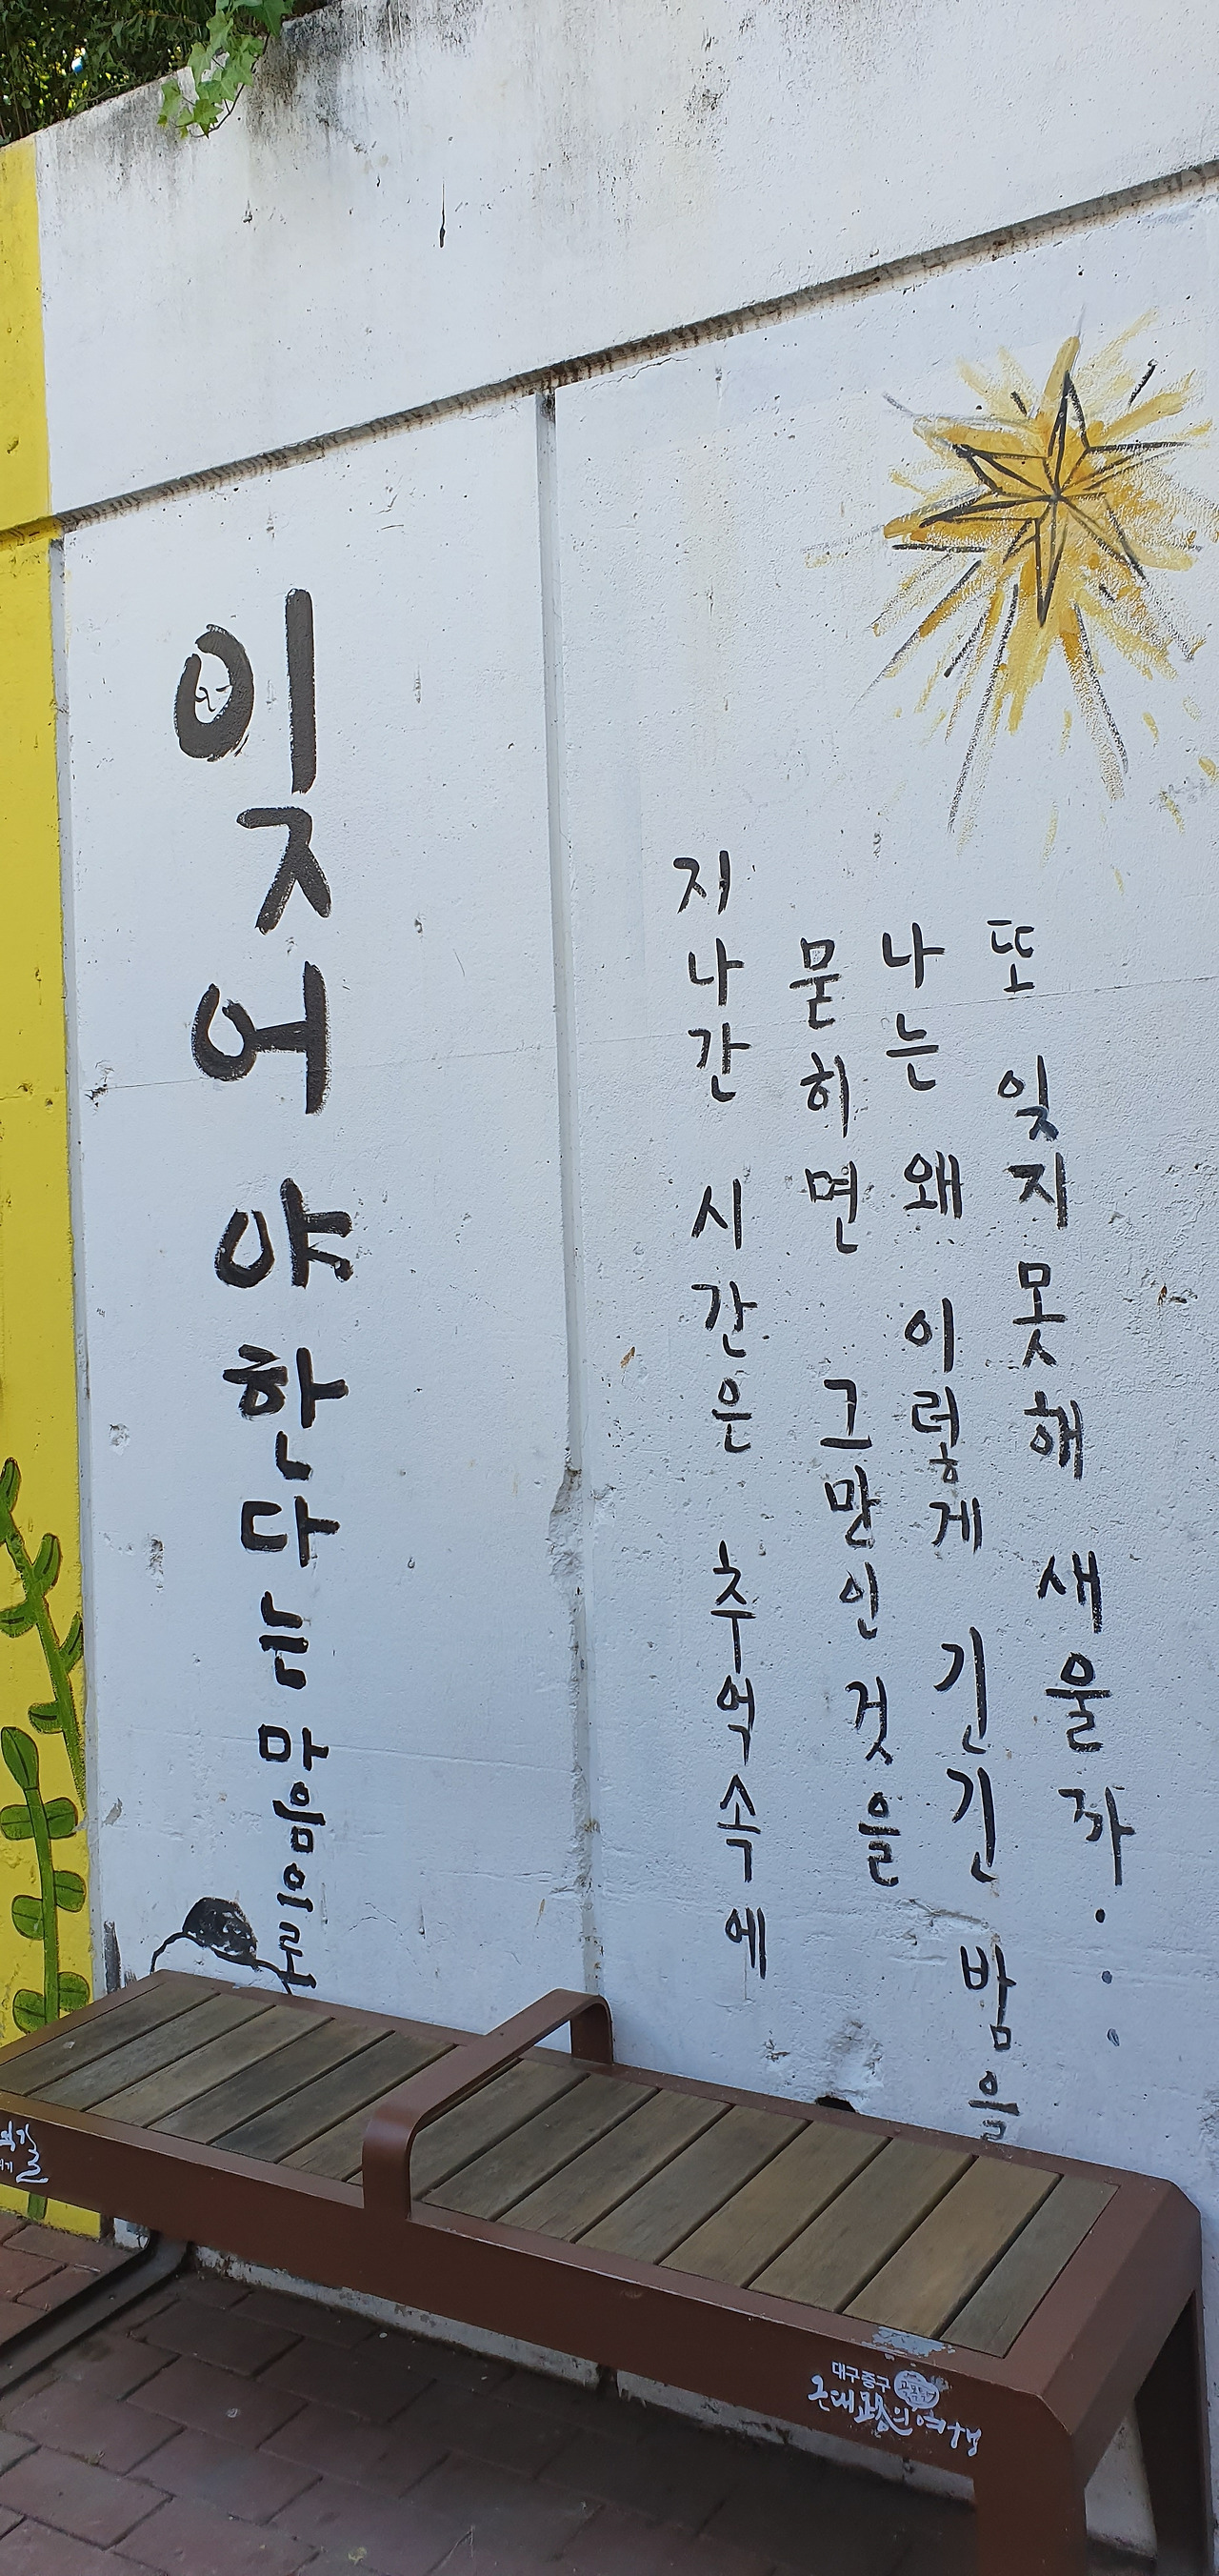 잊어야 한다는 마음으로
지나간 시간은 추억속에
묻히면 그만인것을
나는 왜 이렇게 긴긴 밤을
또 잊지못해 새울까...
대구중구
근대로의여행